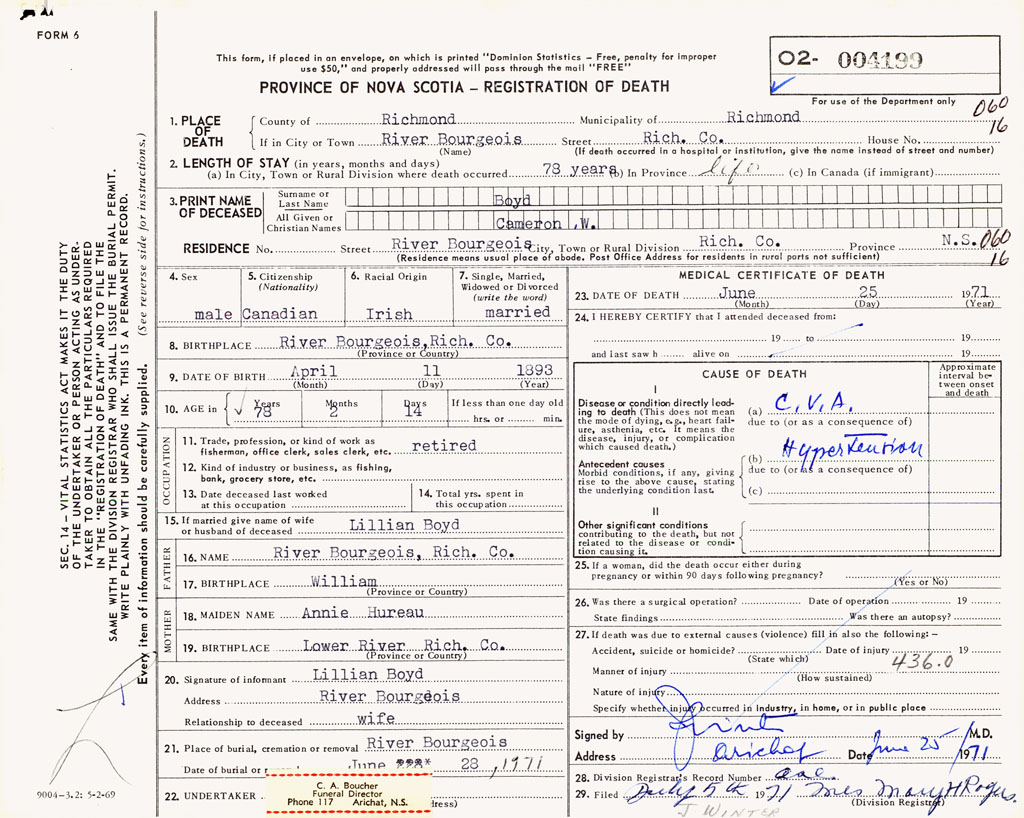 FORM 6
This form, if placed in an envelope, on which is printed "Dominion Statistics – Free, penalty for improper
use $50," and properly addressed will pass through the mail "FREE"
O2- 004199
PROVINCE OF NOVA SCOTIA – REGISTRATION OF DEATH
For use of the Department only
060
16
1. PLACE OF DEATH County of Richmond Municipality of Richmond
If in City or Town River Bourgeois Street Rich. Co. House No.
(Name) (If death occurred in a hospital or institution, give the name instead of street and number)
2. LENGTH OF STAY (in years, months and days)
(a) In City, Town or Rural Division where death occurred 78 years (b) In Province life (c) In Canada (if immigrant)
3. PRINT NAME OF DECEASED
Surname or Last Name Boyd
All Given or Christian Names Cameron ,W.
RESIDENCE No. Street River Bourgeois City, Town or Rural Division Rich. Co. Province N.S. 060
(Residence means usual place of abode. Post Office Address for residents in rural parts not sufficient) 16
4. Sex male
5. Citizenship (Nationality) Canadian
6. Racial Origin Irish
7. Single, Married, Widowed or Divorced (write the word) married
8. BIRTHPLACE River Bourgeois,Rich. Co.
(Province or Country)
9. DATE OF BIRTH April 11 1893
(Month) (Day) (Year)
10. AGE in Years 78 Months 2 Days 14 If less than one day old
hrs. or min.
OCCUPATION
11. Trade, profession, or kind of work as
fisherman, office clerk, sales clerk, etc. retired
12. Kind of industry or business, as fishing,
bank, grocery store, etc.
13. Date deceased last worked
at this occupation
14. Total yrs. spent in
this occupation
15. If married give name of wife
or husband of deceased Lillian Boyd
FATHER
16. NAME River Bourgeois, Rich. Co.
17. BIRTHPLACE William
(Province or Country)
MOTHER
18. MAIDEN NAME Annie Hureau
19. BIRTHPLACE Lower River Rich. Co.
(Province or Country)
20. Signature of informant Lillian Boyd
Address River Bourgeois
Relationship to deceased wife
21. Place of burial, cremation or removal River Bourgeois
Date of burial or June 28 ,1971
22. UNDERTAKER
C. A. Boucher
Funeral Director
Phone 117 Arichat, N.S.
dress)
MEDICAL CERTIFICATE OF DEATH
23. DATE OF DEATH June 25 1971
(Month) (Day) (Year)
24. I HEREBY CERTIFY that I attended deceased from:
19 to 19
and last saw h alive on 19
CAUSE OF DEATH
Approximate interval between onset and death
I
Disease or condition directly leading to death (This does not mean the mode of dying, e.g., heart failure, asthenia, etc. It means the disease, injury, or complication which caused death.)
(a) C.V.A.
due to (or as a consequence of)
Antecedent causes
Morbid conditions, if any, giving rise to the above cause, stating the underlying condition last.
(b) Hypertension
due to (or as a consequence of)
(c)
II
Other significant conditions
contributing to the death, but not
related to the disease or condition causing it.
25. If a woman, did the death occur either during
pregnancy or within 90 days following pregnancy?
(Yes or No)
26. Was there a surgical operation? Date of operation 19
State findings Was there an autopsy?
27. If death was due to external causes (violence) fill in also the following: –
Accident, suicide or homicide? Date of injury 19
(State which) 436.0
Manner of injury
(How sustained)
Nature of injury
Specify whether injury occurred in industry, in home, or in public place
Signed by M.D.
Address Arichat Date June 25 1971
28. Division Registrar's Record Number one
29. Filed July 5th 1971 Mrs Mary H Rogers.
(Division Registrar)
J WINTER
SEC. 14 – VITAL STATISTICS ACT MAKES IT THE DUTY
OF THE UNDERTAKER OR PERSON ACTING AS UNDER-
TAKER TO OBTAIN ALL THE PARTICULARS REQUIRED
IN THE "REGISTRATION OF DEATH" AND TO FILE THE
SAME WITH THE DIVISION REGISTRAR WHO SHALL ISSUE THE BURIAL PERMIT.
WRITE PLAINLY WITH UNFADING INK. THIS IS A PERMANENT RECORD.
Every item of information should be carefully supplied. (See reverse side for instructions.)
9004-3.2: 5-2-69